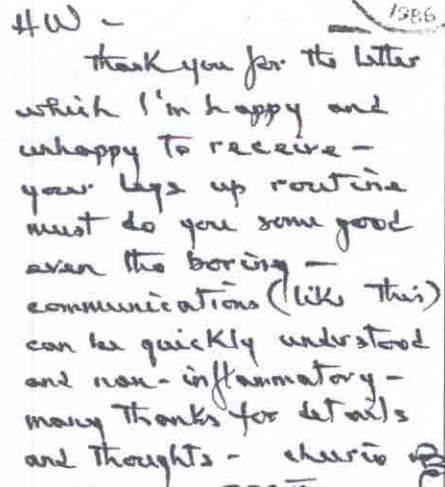 1986
HW -
thank you for the letter
which I'm happy and
unhappy to receive -
your legs up routine
must do you some good
even tho boring -
communications (like this)
can be quickly understood
and non-inflammatory -
many thanks for details
and thoughts - cheerio